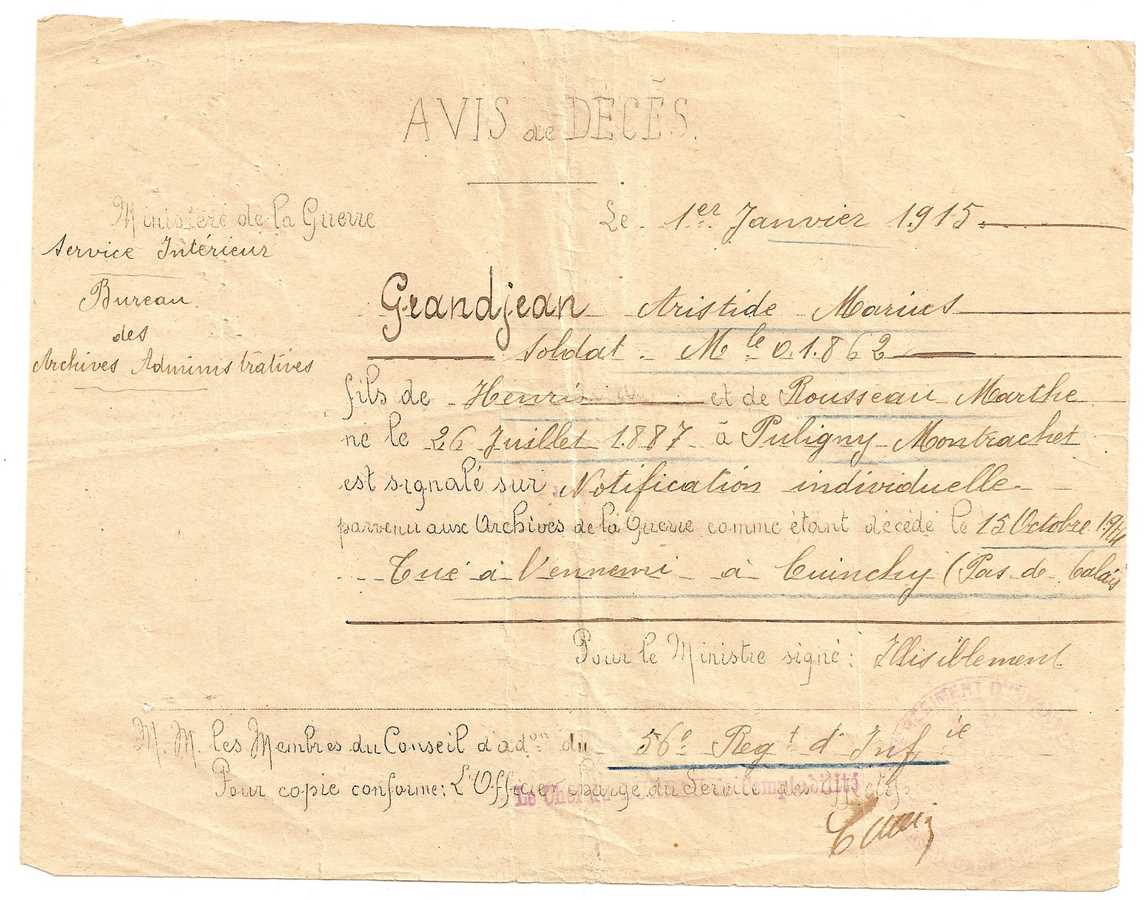 AVIS de DÉCÈS.
Ministère de la Guerre
Service Intérieur
Bureau
des
Archives Administratives
Le 1er Janvier 1915
Grandjean Aristide Marius
Soldat. Mle 01862
fils de Henri et de Rousseau Marthe
né le 26 Juillet 1887 à Puligny Montrachet
est signalé sur Notification individuelle
parvenu aux Archives de la Guerre comme étant décédé le 15 Octobre 1914
Tué à l'ennemi à Cuinchy (Pas de Calais
Pour le Ministre signé: Illisiblement
M. M. les Membres du Conseil d'adon du 56e Regt d'Infie
Pour copie conforme: L'Officier chargé du Service des
Le Chef du Comptabilité
REGIMENT D'